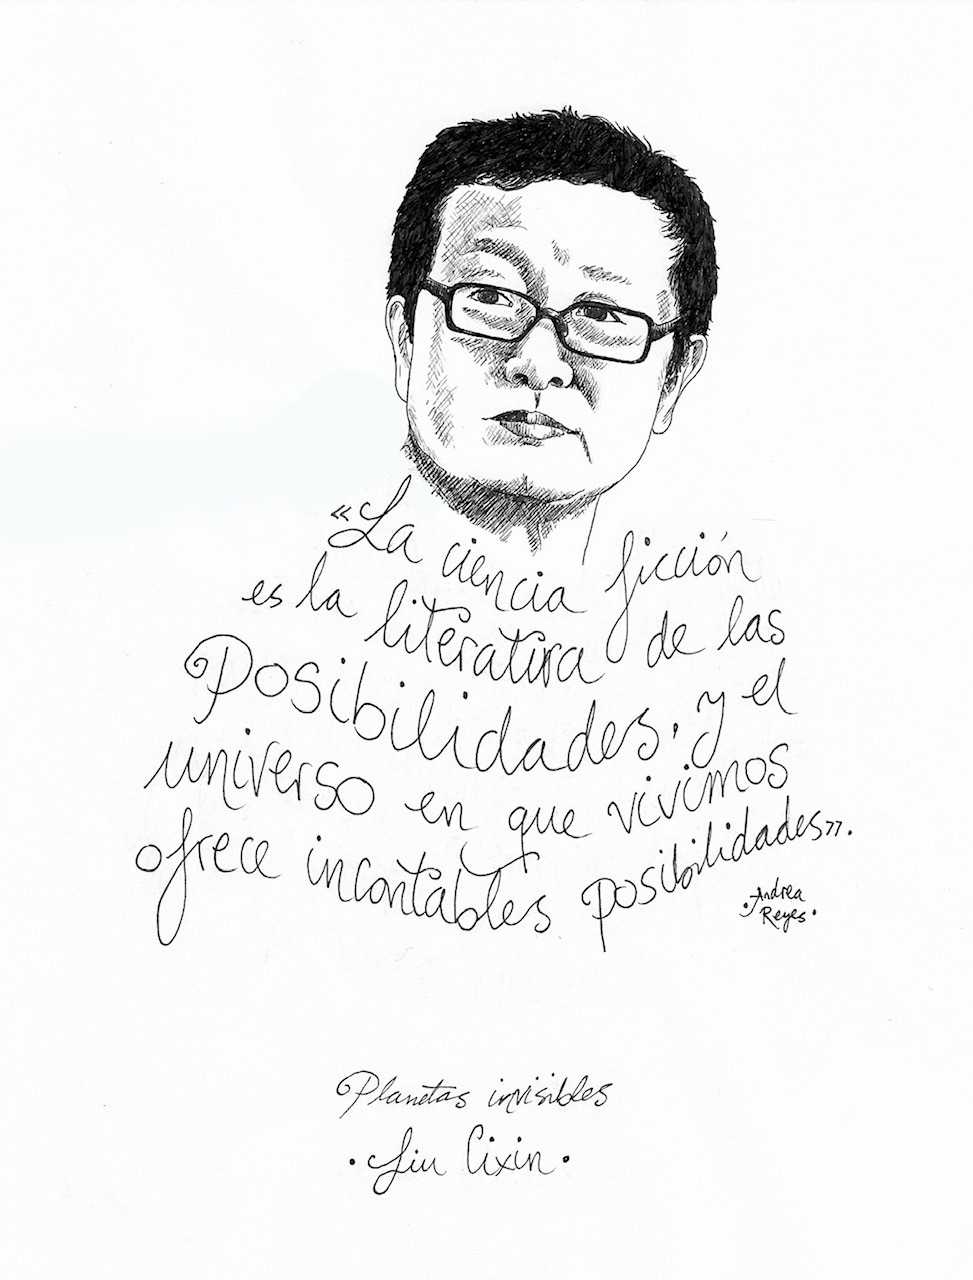 «La ciencia ficción
es la literatura de las
Posibilidades, y el
universo en que vivimos
ofrece incontables posibilidades».
Andrea
Reyes
Planetas invisibles
Liu Cixin